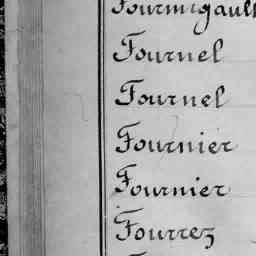 Fournel
Fournel
Fournier
Fournier
Fourrez